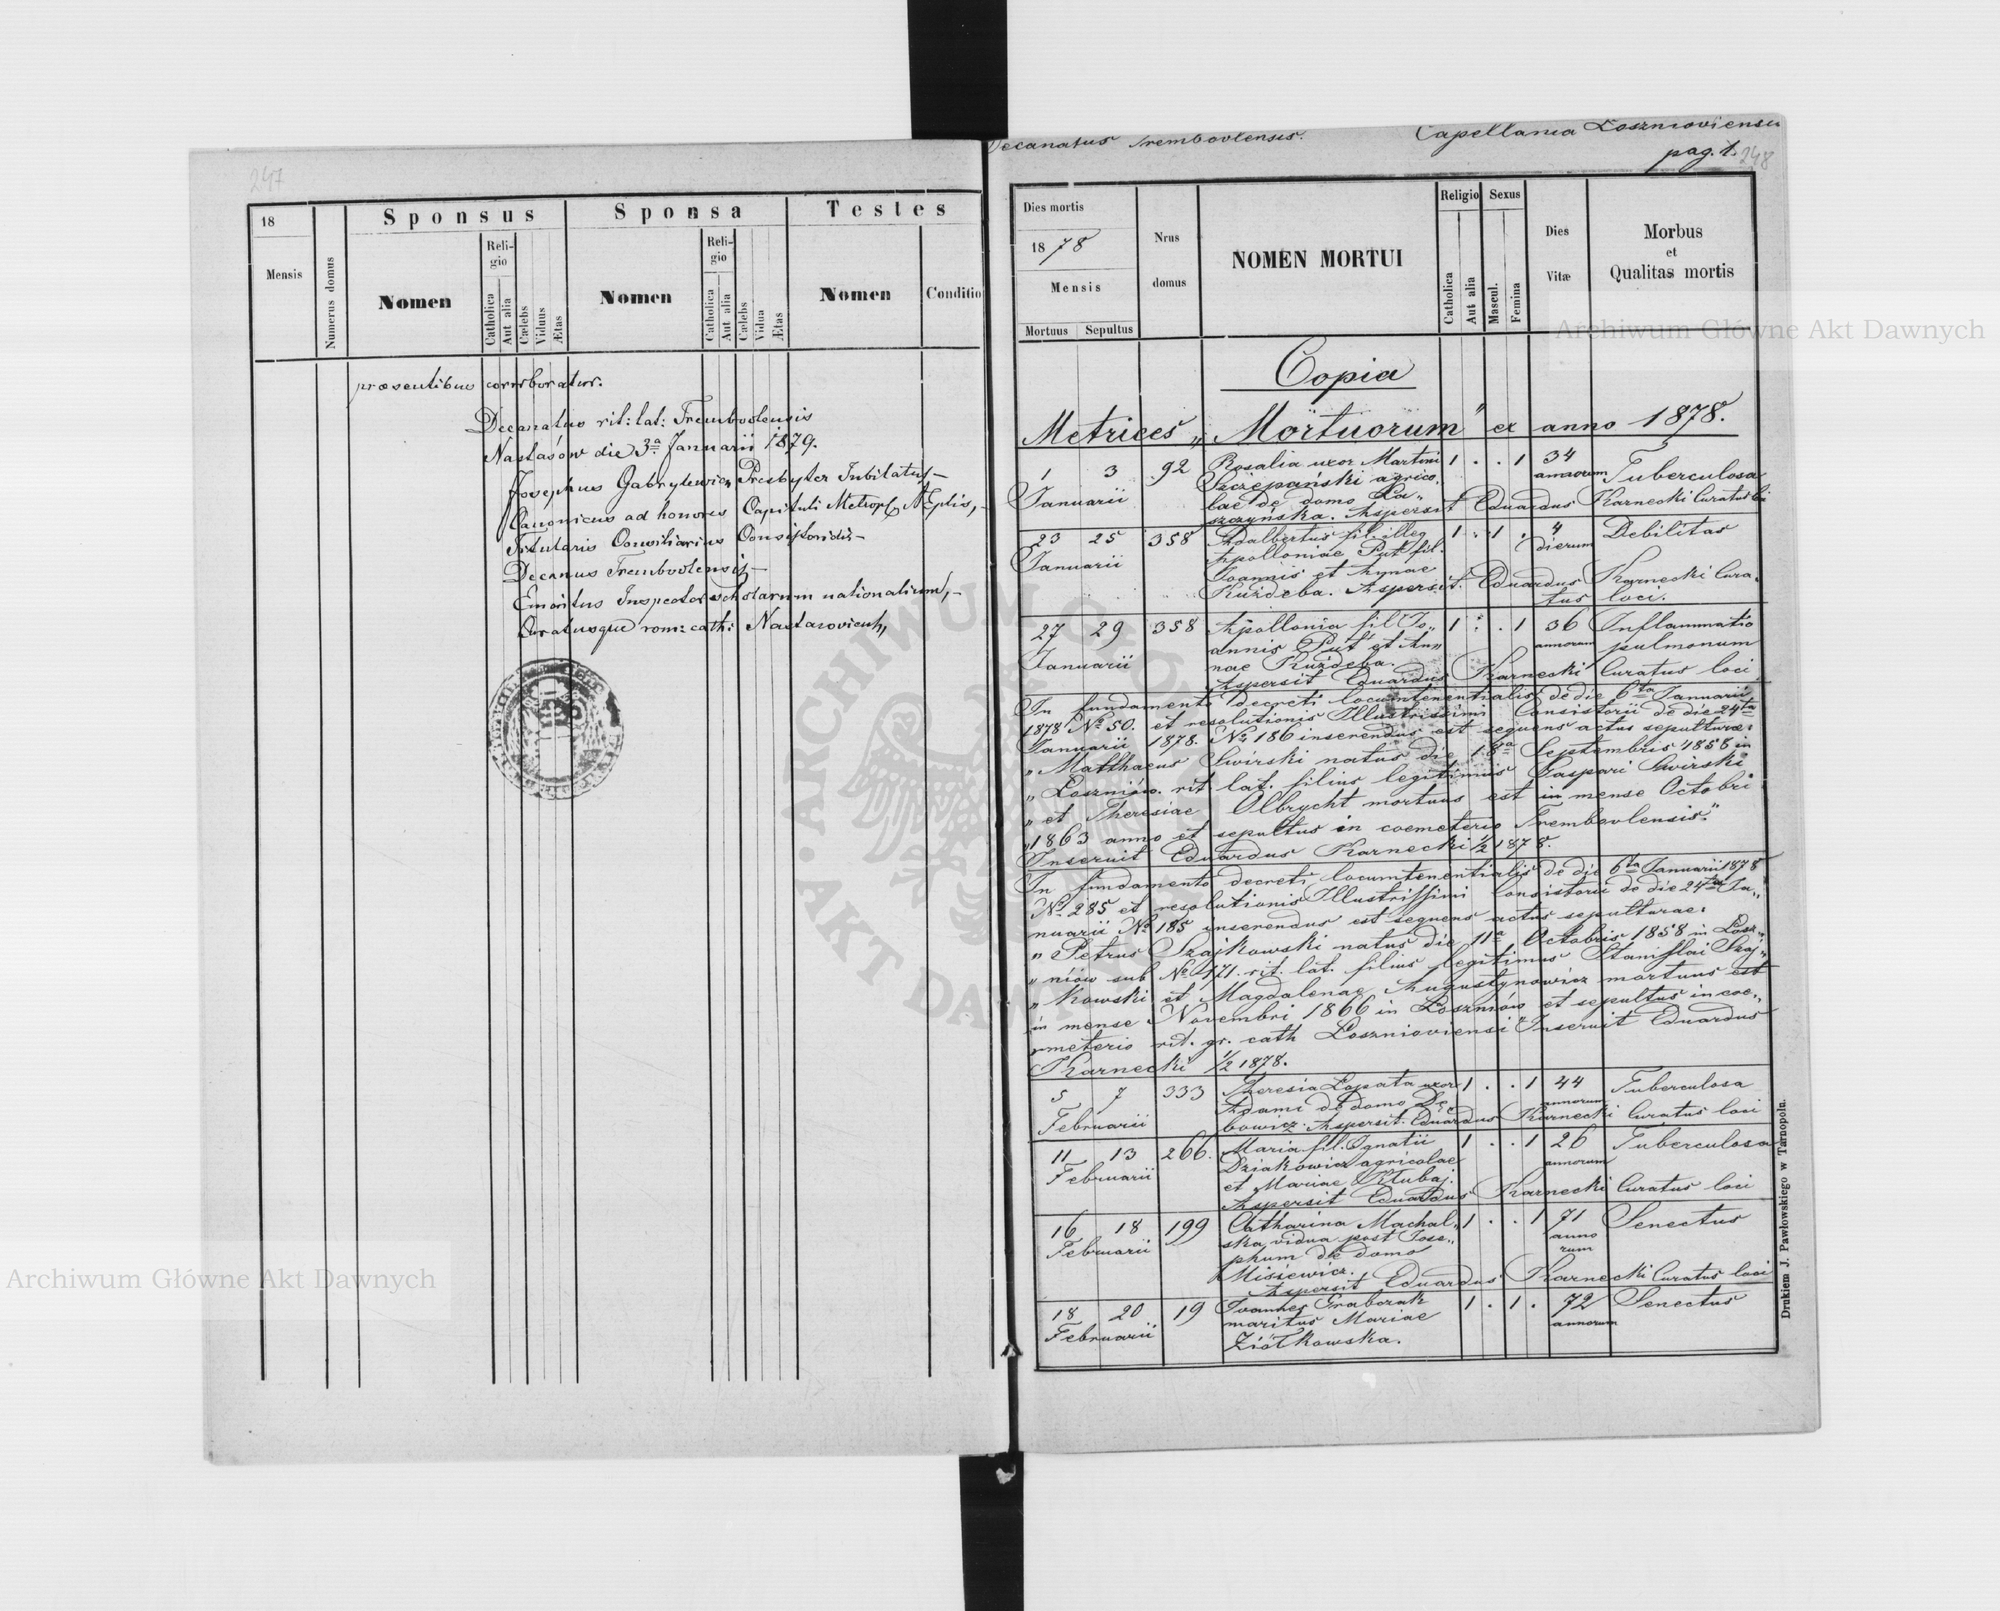 247
Sponsus
Sponsa
Testes
18
Mensis
Numerus domus
Nomen
Religio
Catholica
Aut alia
Cælebs
Viduus
Ætas
Nomen
Religio
Catholica
Aut alia
Cælebs
Vidua
Ætas
Nomen
Conditio
præsentibus corroboratur.
Decanatus rit: lat: Trembovlensis
Nastasów die 3ª Januarii 1879.
Josephus Gabrylewicz Presbyter Jubilatus,
Canonicus ad honores Capituli Metropl
Titularis Consiliarius Consistorialis
Decanus Trembovlensis
Emeritus Inspector scholarum nationalium,
Curatusque rom: cath: Nastasoviensis,
Decanatus Trembovlensis.
Capellania Łoszniowiensis
pag. 1. 248
Dies mortis
1878
Mensis
Mortuus
Sepultus
Nrus domus
NOMEN MORTUI
Religio
Catholica
Aut alia
Sexus
Mascul.
Femina
Dies Vitæ
Morbus
et
Qualitas mortis
Copia
Metrices „Mortuorum" ex anno 1878.
1 3 92 Rosalia uxor Martini 1 . . 1 34 annorum Tuberculosa
Januarii Szczepański agrico-
lae de domo Ła-
szczyńska. Aspersit Eduardus Karnecki Curatus loci
23 25 358 Adalbertus fil. illeg 1 . 1 . 4 dierum Debilitas
Januarii Apolloniae Put fil.
Joannis et Annae
Kuzdeba. Aspersit. Eduardus Karnecki Cura-
tus loci.
27 29 358 Apollonia fil Jo- 1 . . 1 36 annorum Inflammatio
Januarii annis Put et An- pulmonum
nae Kuzdeba.
Aspersit Eduardus Karnecki Curatus loci
In fundamento decreti locumtenentialis de die 6ta Januarii
1878 No 50. et resolutionis Illustrissimi Consistorii de die 24ta
Januarii 1878. No 186 inserendus est sequens actus sepulturae:
„Matthaeus Swirski natus die 18a Septembris 1858 in
„Łoszniów. rit lat. filius legitimus Gaspari Swirski
„et Theresiae Olbrycht mortuus est in mense Octobri
„1863 anno et sepultus in coemeterio Trembovlensis."
Inseruit Eduardus Karnecki 1/2 1878.
In fundamento decreti locumtenentialis de die 6ta Januarii 1878
No 285 et resolutionis Illustrissimi Consistorii de die 24ta Ja-
nuarii No 185 inserendus est sequens actus sepulturae:
„Petrus Szajkowski natus die 11a Octobris 1858 in Łosz-
„niów sub No 171. rit. lat. filius legitimus Stanislai Szaj-
„kowski et Magdalenae Augustynowicz mortuus est
in mense Novembri 1866 in Łoszniów et sepultus in coe-
„meterio rit. gr. cath Łoszniowiensi" Inseruit Eduardus
Karnecki 1/2 1878.
5 7 333 Theresia Łopata uxor 1 . . 1 44 annorum Tuberculosa
Februarii Adami de domo Dę-
bowicz. Aspersit. Eduardus Karnecki Curatus loci
11 13 266. Maria fil. Ignatii 1 . . 1 26 annorum Tuberculosa
Februarii Dziakowicz agricolae
et Mariae Kłubaj.
Aspersit Eduardus Karnecki Curatus loci
16 18 199 Catharina Machal- 1 . . 1 71 anno rum Senectus
Februarii ska vidua post Jose-
phum de domo
Misiewicz.
Aspersit Eduardus Karnecki Curatus loci
18 20 19 Joannes Graborak 1 . 1 . 72 annorum Senectus
Februarii maritus Mariae
Ziółkowska.
Drukiem J. Pawłowskiego w Tarnopolu.
Archiwum Główne Akt Dawnych
Archiwum Główne Akt Dawnych
ARCHIWUM GŁÓWNE AKT DAWNYCH